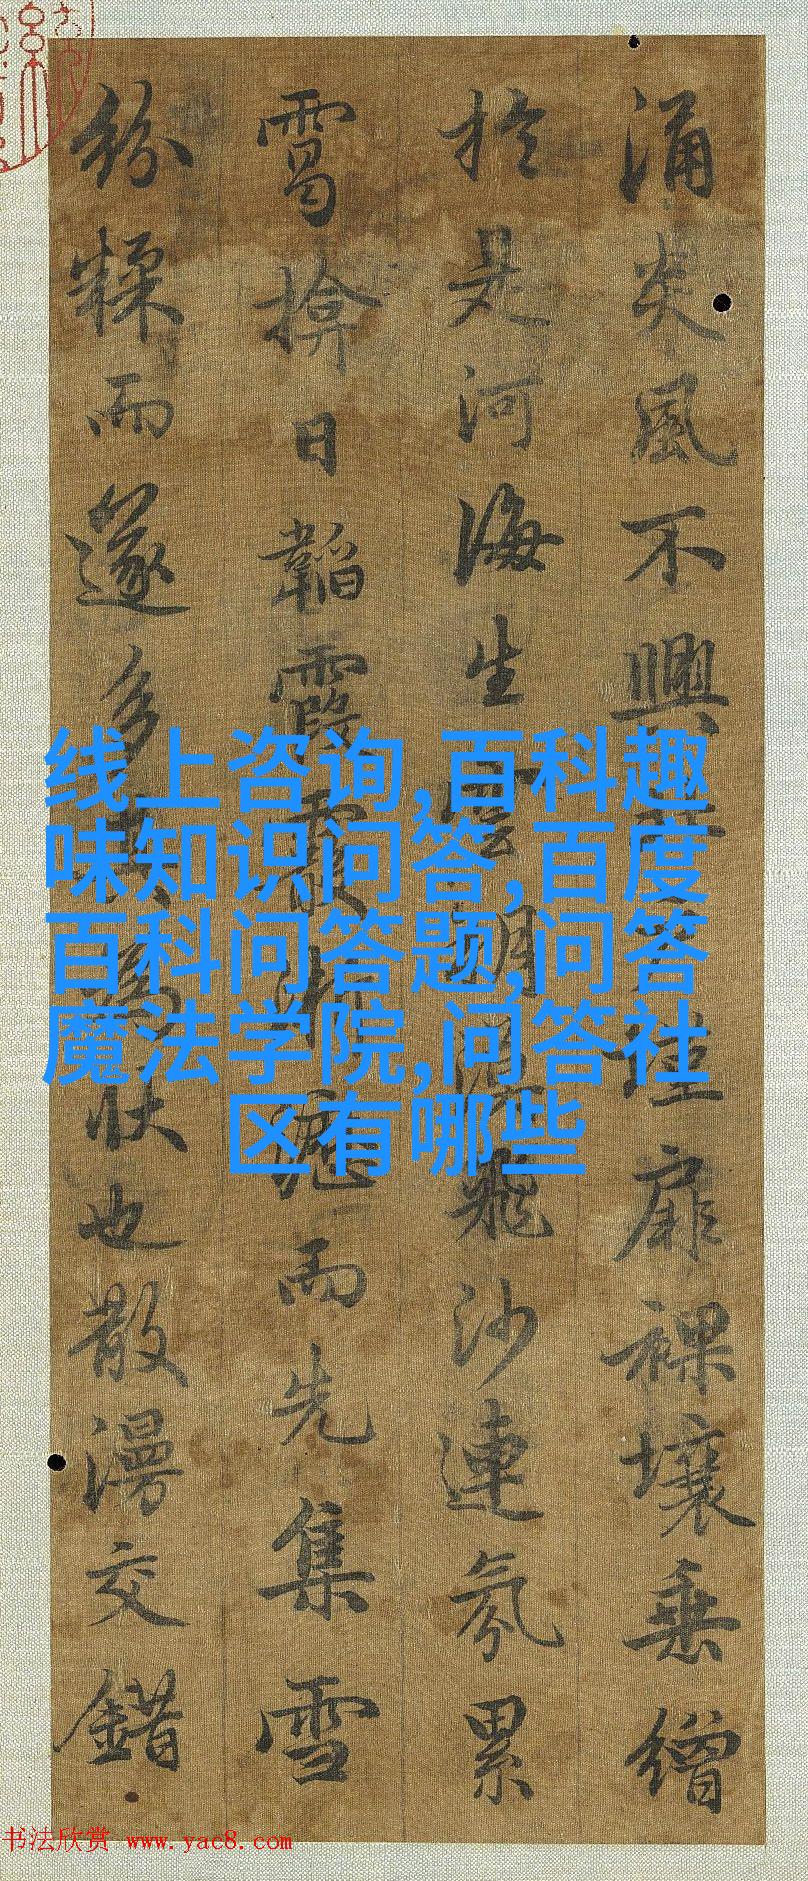 涌炎風不興墐扉裸壤垂繒
於是河海生雲朔漠飛沙連氛累
靄揜日韜霞霰淅瀝而先集雪
紛糅而遂多其為狀也散漫交錯
线上咨询,百科趣
味知识问答,百度
百科问答题,问答
魔法学院,问答社
区有哪些
书法欣赏 www.yac8.com